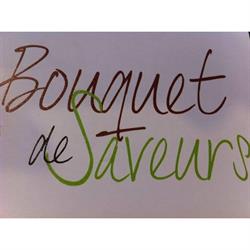 Bouquet
de Saveurs